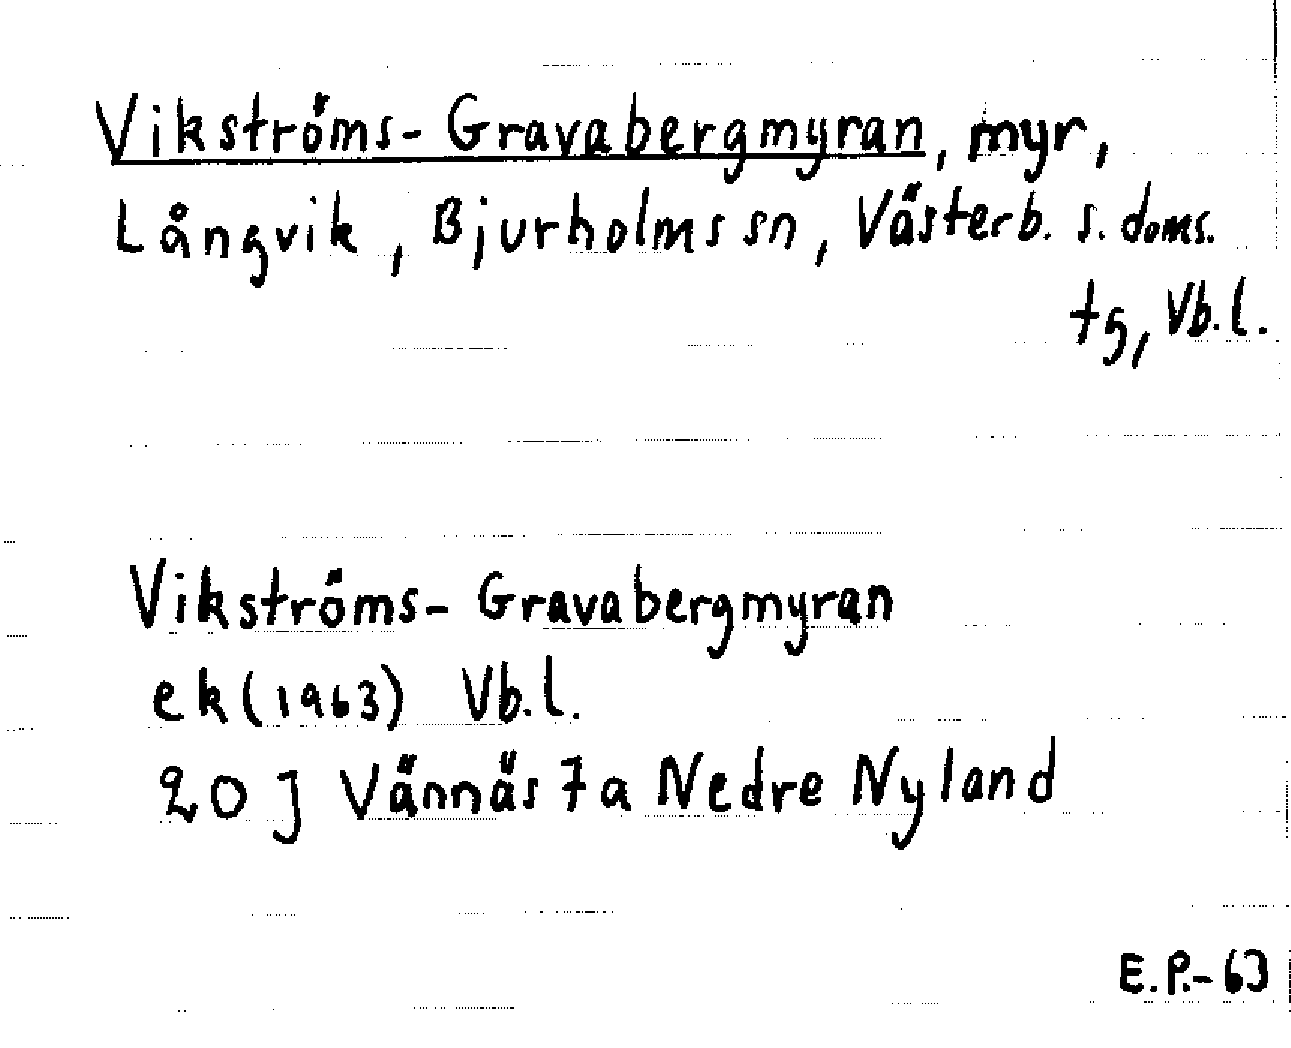 Vikströms-Gravabergmyran, myr,
Långvik, Bjurholms sn, Västerb. s. doms.
tg, Vb.l.
Vikströms-Gravabergmyran
ek (1963) Vb.l.
20 J Vännäs 7a Nedre Nyland
E.P.-63